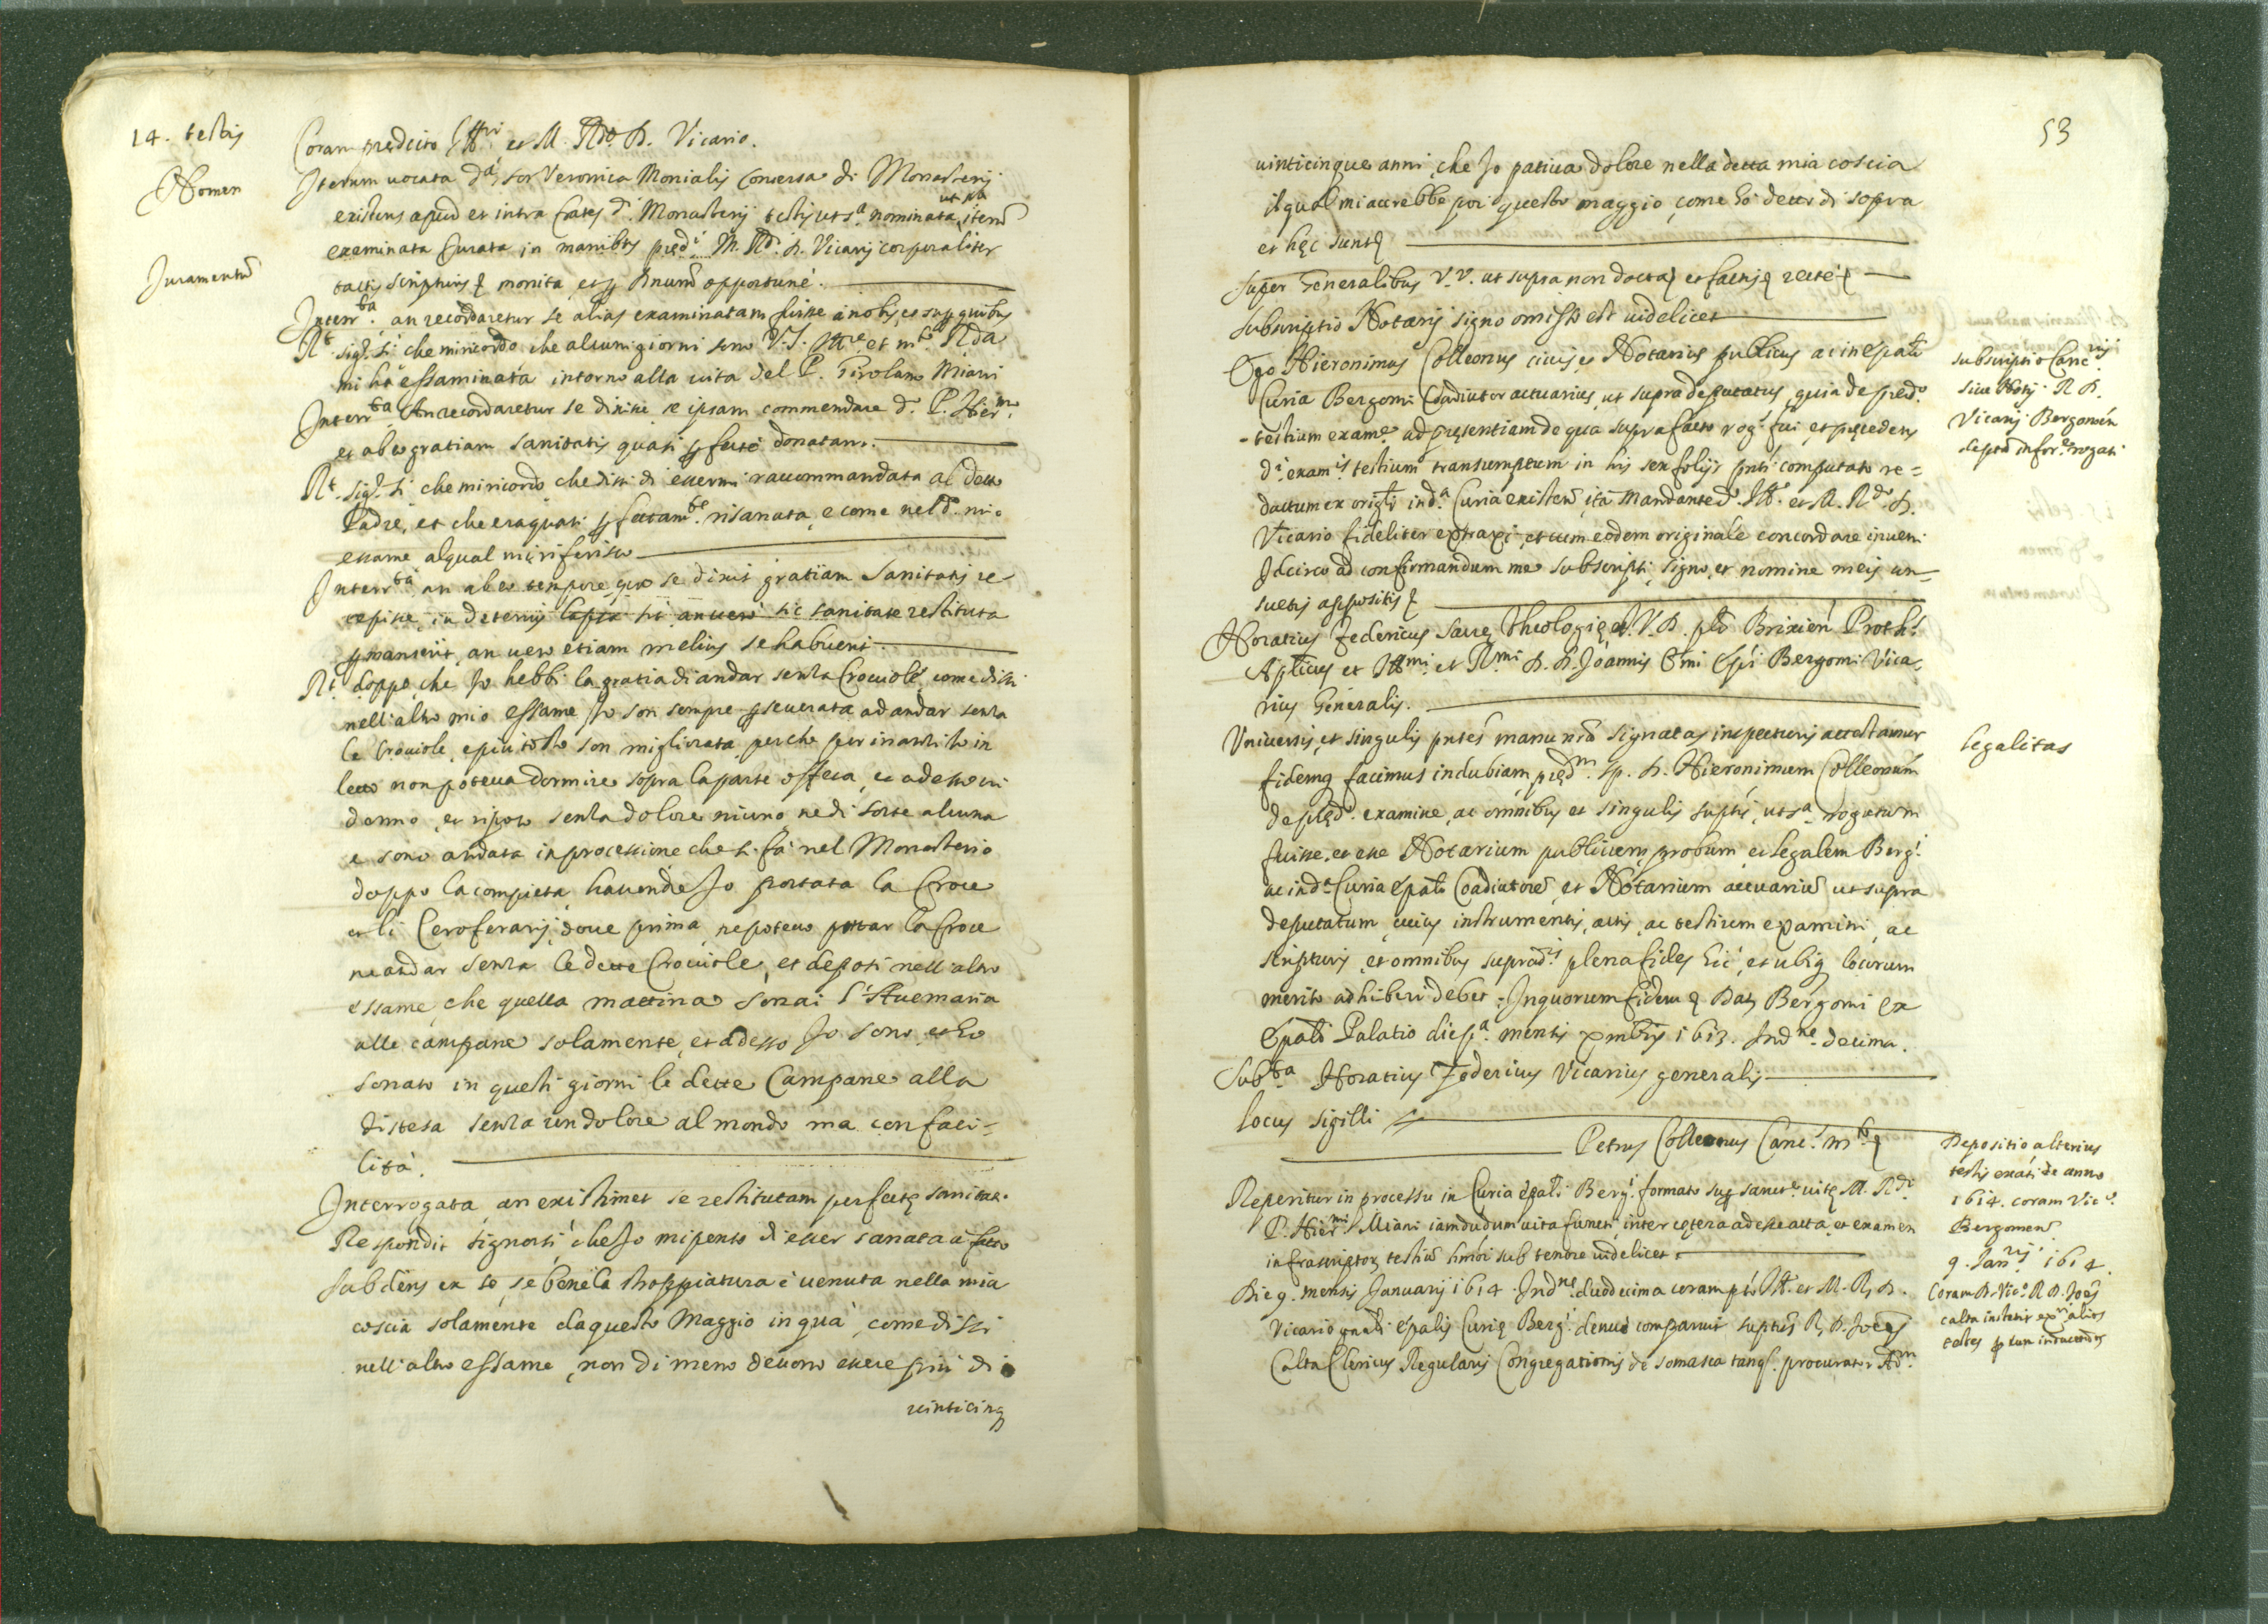 14. testis
Coram predicto Ill.ri et M. R.do D. Vicario.
Nomen
Iterum uocata d.a sor Veronica Monialis Conuersa d.i Monasterij
existens apud et intra Crates d.i Monasterij testis ut s.a nominata, ut s.a iterũ
examinata Iurata in manibus pred.i M. R.di D. Vicarij corporaliter
Juramentũ
tactis scripturis monita opportunè.
Interr.ta an recordaretur se alias examinatam fuisse à nobis, et quibus
R.t sig.r si che mi ricordo che alcuni giorni sono V.S. Ill.re et m.to R.da
mi hà essaminata intorno alla uita del P. Girolamo Miani
Interr.ta An recordaretur se dixisse se ipsam commendare d. P. Hier.mo
et ab eo gratiam sanitatis quasi donatam.
R.t sig.r si che mi ricordo che dissi di essermi raccommandata al detto
Padre, et che era quasi risanata, e come nel d. mio
essame al qual mi riferisco
Interr.ta an ab eo tempore quo se dixit gratiam sanitatis re
cepisse, in deterius lapsa sit an uero sic sanitate restituta
permanserit, an uero etiam melius se habuerit.
R.t doppo che Io hebbi la gratia di andar senza Crociole, come dissi
nell'altro mio essame Io son sempre perseuerata ad andar senza
le Crociole, e piu tosto son migliorata perche per inanzi Io in
letto non poteua dormire sopra la parte offesa, et adesso ui
dormo, et riposo senza dolore niuno ne di sorte alcuna
e sono andata in processione che si fa nel Monasterio
doppo la compieta hauendo Io portata la Croce
et li Ceroferarij, doue prima ne poteuo portar la Croce
ne andar senza le dette Crociole, et deposi nell'altro
essame che quella mattina sonai l'Auemaria
alle campane solamente, et adesso Io sono, et ho
sonato in questi giorni le dette Campane alla
distesa senza un dolore al mondo ma con faci=
lità.
Interrogata an existimet se restitutam perfectę sanitati.
Respondit signor sì, che Io mi penso di esser sanata à fatto
subdens ex se, se bene la stroppiatura è uenuta nella mia
coscia solamente da questo Maggio in quà, come dissi
nell'altro essame, non di meno deuono essere più di
uinticinq
53
uinticinque anni che Io patiua dolore nella detta mia coscia
il qual mi accrebbe poi questo maggio, come hò detto di sopra
et hęc sunt
super Generalibus V.V. ut supra non docta et rectè
subscriptio Notarij signo omisso est uidelicet
Ego Hieronimus Colleonus ciuis, et Notarius publicus ac in epãli
Curia Bergomi Coadiutor actuarius, ut supra deputatus, quia de pred.o
testium exam.e ad pręsentiam de qua supra facto rog.s fui et pręcedens
d.i exam.is testium transumptum in his sex folijs pnti computato re=
dactum ex origli in d.a Curia existeñ ita mandante d.o Ill. et M. R.do D.
Vicario fideliter extraxi, et cum eodem originale concordare inueni
Idcirco ad confirmandum me subscripsi, signo, et nomine meis con=
suetis appositis
subscriptio Canc.rij
siue Notij R. D.
Vicarij Bergomeñ
Horatius Federicus Sacrę Theologię et I.V.D. Brixień Proth.s
Aplicus et Ill.mi et R.mi D. D. Joannis Emi Epi Bergomi Vica=
rius Generalis.
Legalitas
Vniuersis, et singulis pntes manu nrã signatas inspecturis attestamur
fidemq facimus indubiam, pręd.m sp. D. Hieronimum Colleonum
de pręd. examine, ac omnibus et singulis suptis, ut s.a rogatum
fuisse, et esse Notarium publicum, probum, et legalem Berg.i
ac in d.a Curia epãli Coadiutorẽ, et Notarium actuariũ ut supra
deputatum, cuius instrumentis, actis, ac testium examini, ac
scripturis, et omnibus suprad.is plena fides hic, et ubiq locorum
merito adhiberi debet. In quorum fidem Dat Bergomi Ex
Epali Palatio die p.a mensis xmbris 1613. Ind.ne decima.
Sub.ta Horatius Federicus Vicarius generalis
locus sigilli
Petrus Colleonus Canc.s
Reperitur in processu in Curia epãli Berg.i formato sup sanct.e uitę M. R.di
P. Hier.mi Miani iamdudum uita functi, inter cętera adesse acta, et examen
infrascriptor testiũ hmõi sub tenore uidelicet.
Depositio alterius
testis exãti de anno
1614. coram Vic.o
Bergomens
9. Jan.rij 1614.
Die 9. mensis Januarij 1614. Ind.ne duodecima coram Ill. et M. R. D.
Vicario gnãli epalis Curię Berg.i denuo comparuit suptus R. D. Joẽs
Calta Clericus Regularis Congregationis de somasca procurator
Coram D. Vic.o R. D. Joẽs
Calta institit alios
testes